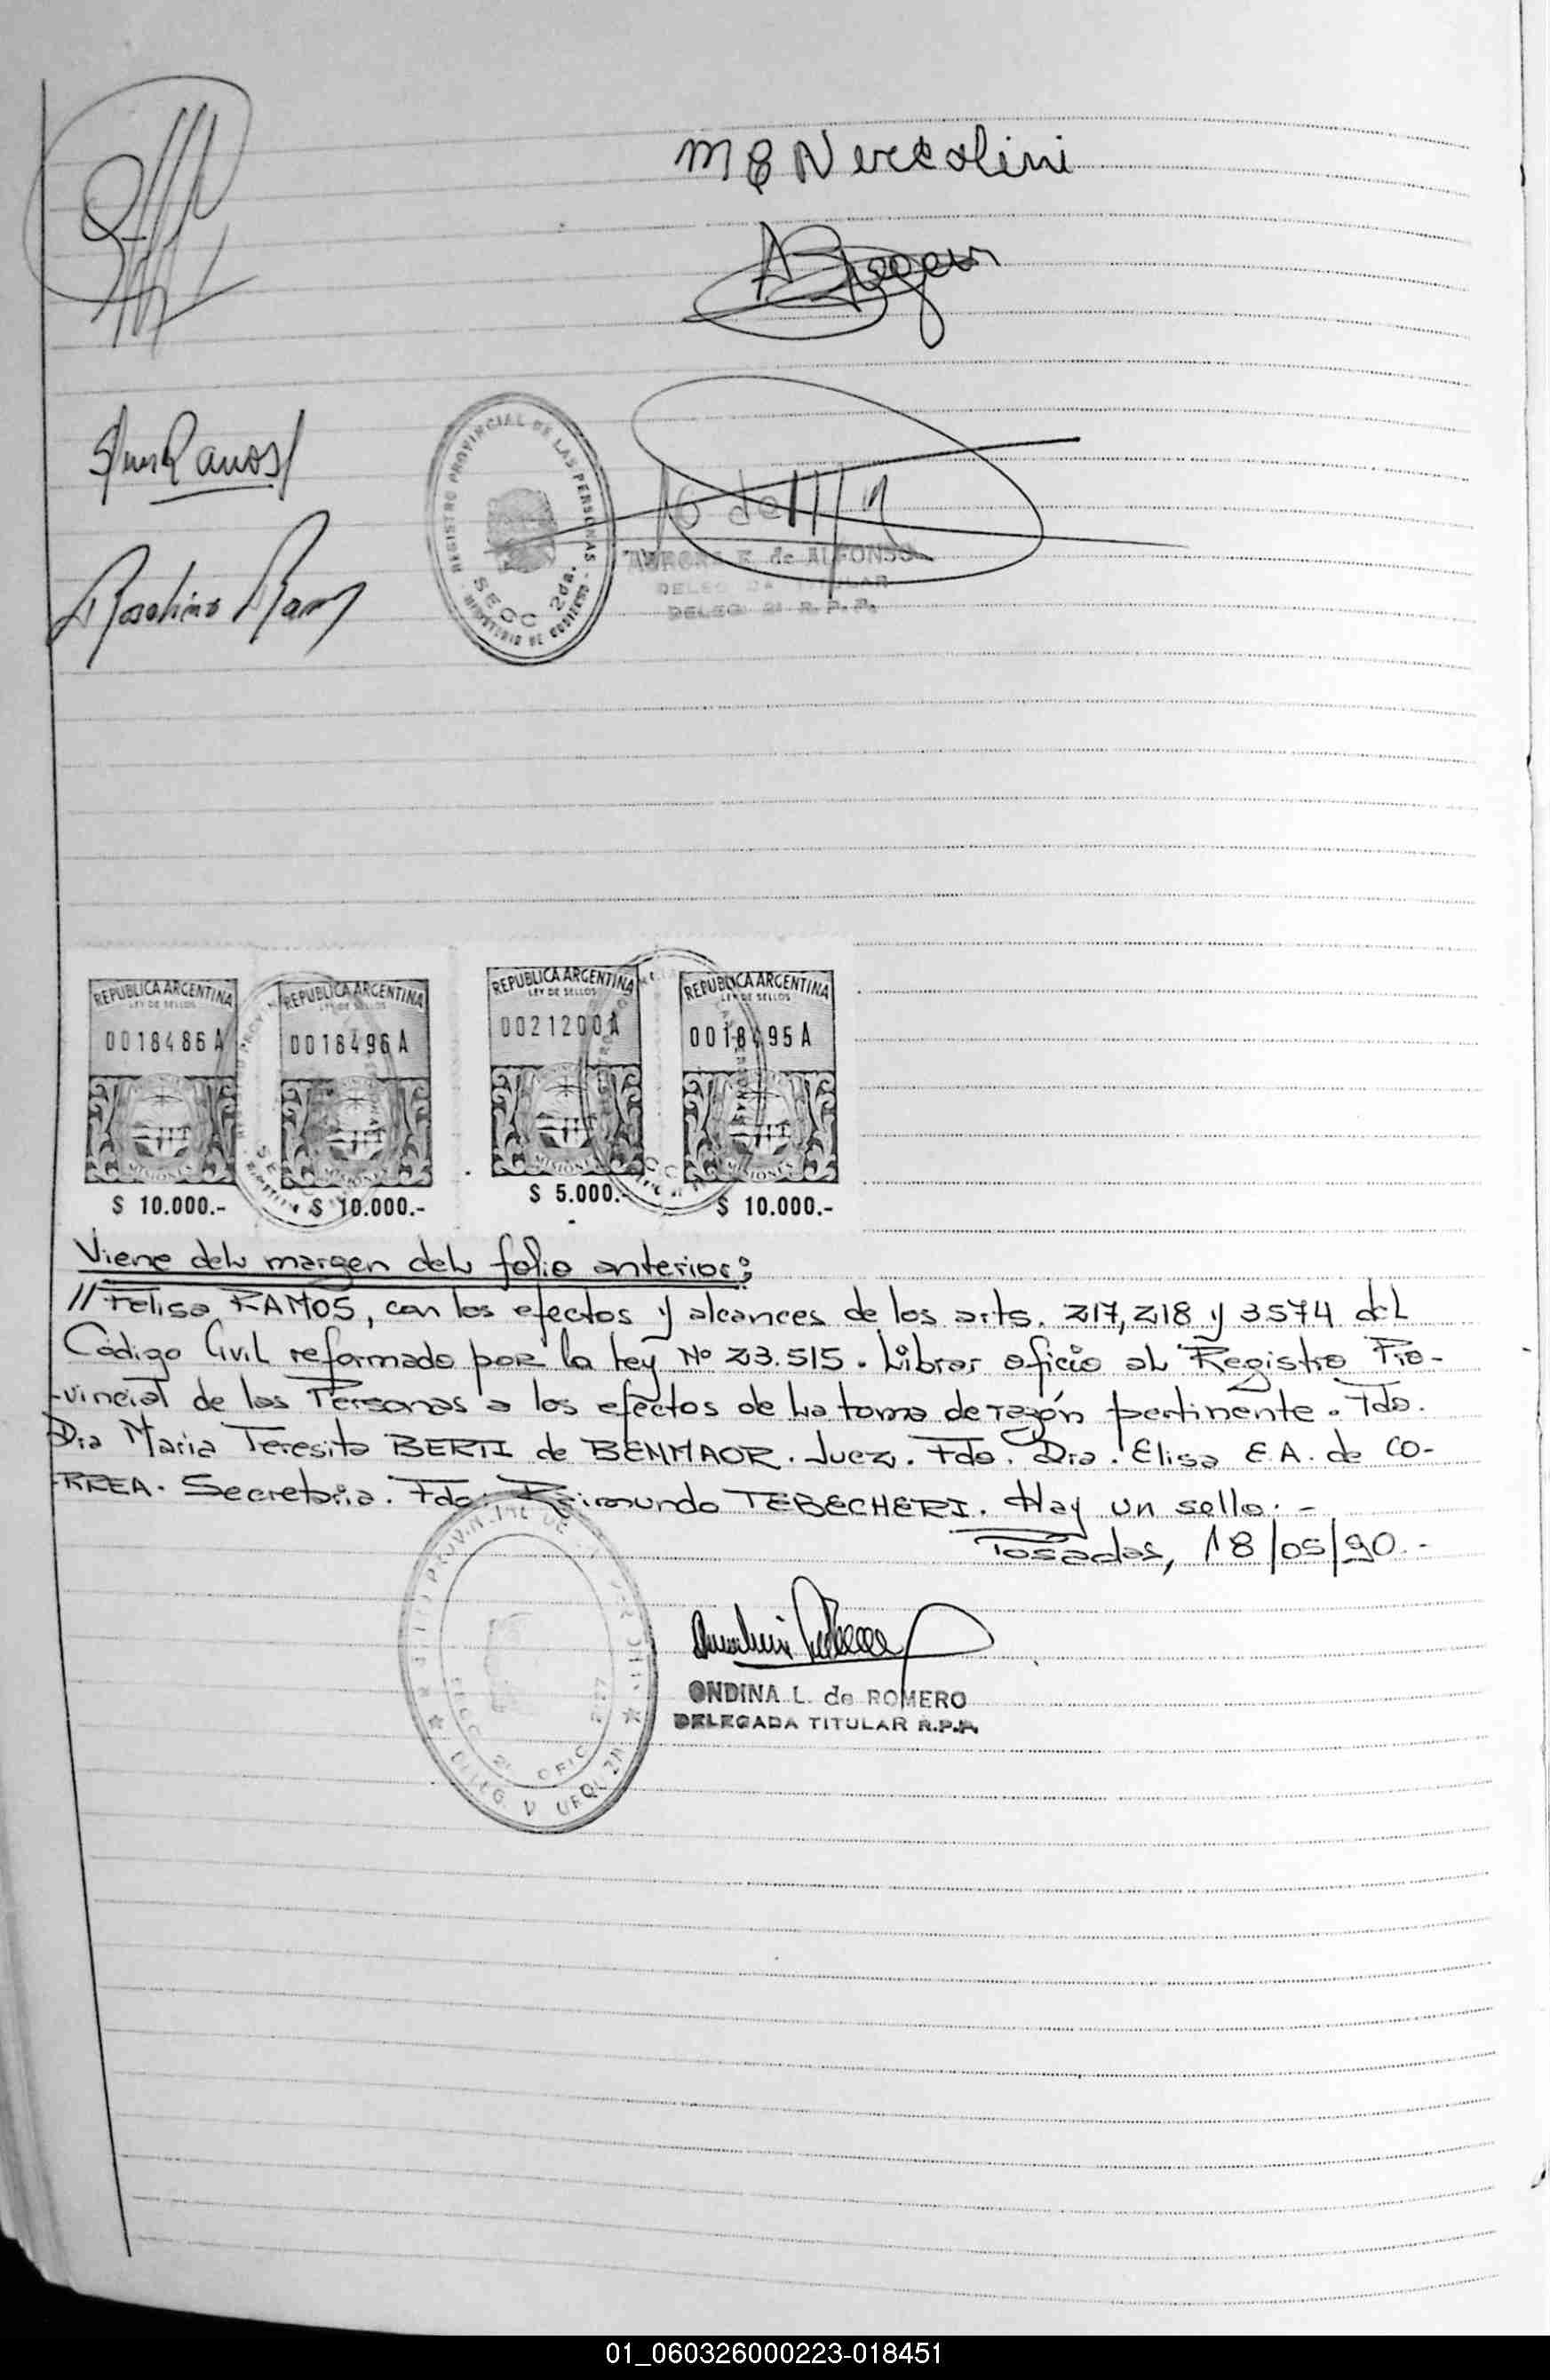 M E Nercolini
Ramos
Ramos
REGISTRO PROVINCIAL DE LAS PERSONAS
SECC 2da.
MINISTERIO DE GOBIERNO
AURORA E. de ALFONSO
DELEGADA TITULAR
DELEG 2ª R.P.P.
REPUBLICA ARGENTINA
LEY DE SELLOS
0018486 A
MISIONES
$ 10.000.-
REPUBLICA ARGENTINA
LEY DE SELLOS
0018496 A
MISIONES
$ 10.000.-
REPUBLICA ARGENTINA
LEY DE SELLOS
0021200 A
MISIONES
$ 5.000.-
REPUBLICA ARGENTINA
LEY DE SELLOS
0018495 A
MISIONES
$ 10.000.-
Viene del margen del folio anterior:
// Felisa RAMOS, con los efectos y alcances de los arts. 217, 218 y 3574 del
Código Civil reformado por la Ley Nº 23.515. Librar oficio al Registro Pro-
-vincial de las Personas a los efectos de la toma de razón pertinente. Fdo.
Dra Maria Teresita BERTI de BENMAOR. Juez. Fdo. Dra. Elisa E.A. de CO-
-RREA. Secretaria. Fdo: Raimundo TEBECHERI. Hay un sello.-
Posadas, 18/05/90.-
ONDINA L. de ROMERO
DELEGADA TITULAR R.P.P.
01_060326000223-018451